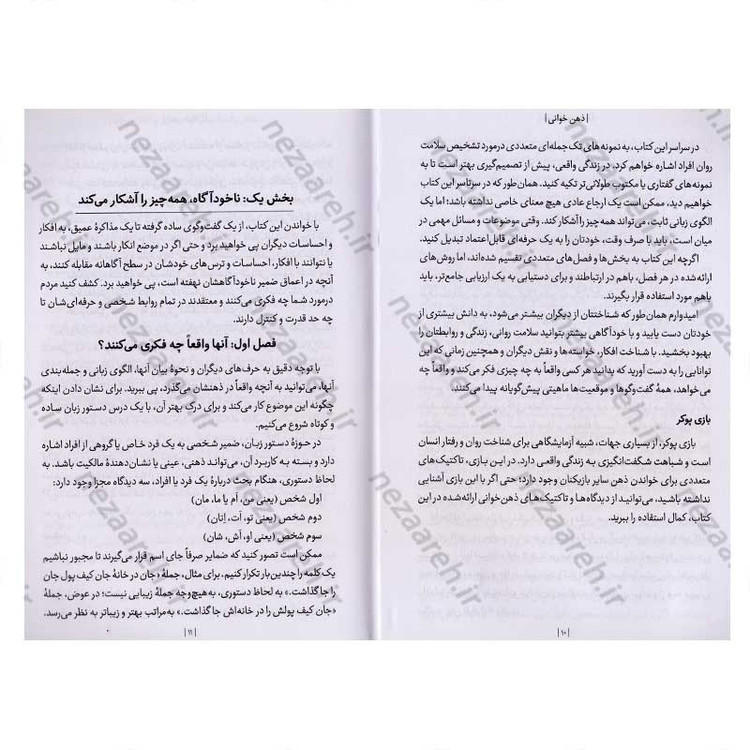 | ذهن خوانی |
در سراسر این کتاب، به نمونه‌های تک‌جمله‌ای متعددی درمورد تشخیص سلامت
روان افراد اشاره خواهم کرد، در زندگی واقعی، پیش از تصمیم‌گیری بهتر است تا به
نمونه‌های گفتاری یا مکتوب طولانی‌تر تکیه کنید. همان‌طور که در سرتاسر این کتاب
خواهیم دید، ممکن است یک ارجاع عادی هیچ معنای خاصی نداشته باشد؛ اما یک
الگوی زبانی ثابت، می‌تواند همه‌چیز را آشکار کند. وقتی موضوعات و مسائل مهمی در
میان است، باید با صرف وقت، خودتان را به یک حرفه‌ای قابل اعتماد تبدیل کنید.
اگرچه این کتاب به بخش‌ها و فصل‌های متعددی تقسیم شده‌اند، اما روش‌های
ارائه‌شده در هر فصل، باهم در ارتباطند و برای دستیابی به یک ارزیابی جامع‌تر، باید
باهم مورد استفاده قرار بگیرند.
امیدوارم همان‌طور که شناختتان از دیگران بیشتر می‌شود، به دانش بیشتری از
خودتان دست یابید و با خودآگاهی بیشتر بتوانید سلامت روانی، زندگی و روابطتان را
بهبود بخشید. با شناخت افکار، خواسته‌ها و نقش دیگران و همچنین زمانی که این
توانایی را به دست آورید که بدانید هر کسی واقعاً به چه چیزی فکر می‌کند و واقعاً چه
می‌خواهد، همهٔ گفت‌وگوها و موقعیت‌ها ماهیتی پیش‌گویانه پیدا می‌کنند.
بازی پوکر
بازی پوکر، از بسیاری جهات، شبیه آزمایشگاهی برای شناخت روان و رفتار انسان
است و شباهت شگفت‌انگیزی به زندگی واقعی دارد. در این بازی، تاکتیک‌های
متعددی برای خواندن ذهن سایر بازیکنان وجود دارد؛ حتی اگر با این بازی آشنایی
نداشته باشید، می‌توانید از دیدگاه‌ها و تاکتیک‌های ذهن‌خوانی ارائه‌شده در این
کتاب، کمال استفاده را ببرید.
| ۱۰ |
بخش یک: ناخودآگاه، همه‌چیز را آشکار می‌کند
با خواندن این کتاب، از یک گفت‌وگوی ساده گرفته تا یک مذاکرهٔ عمیق، به افکار
و احساسات دیگران پی خواهید برد و حتی اگر در موضع انکار باشند و مایل نباشند
یا نتوانند با افکار، احساسات و ترس‌های خودشان در سطح آگاهانه مقابله کنند، به
آنچه در اعماق ضمیر ناخودآگاهشان نهفته است، پی خواهید برد. کشف کنید مردم
درمورد شما چه فکری می‌کنند و معتقدند در تمام روابط شخصی و حرفه‌ای‌شان تا
چه حد قدرت و کنترل دارند.
فصل اول: آنها واقعاً چه فکری می‌کنند؟
با توجه دقیق به حرف‌های دیگران و نحوهٔ بیان آنها، الگوی زبانی و جمله‌بندی
آنها، می‌توانید به آنچه واقعاً در ذهنشان می‌گذرد، پی ببرید. برای نشان دادن اینکه
چگونه این موضوع کار می‌کند و برای درک بهتر آن، با یک درس دستور زبان ساده
و کوتاه شروع می‌کنیم.
در حوزهٔ دستور زبان، ضمیر شخصی به یک فرد خاص یا گروهی از افراد اشاره
دارد و بسته به کاربرد آن، می‌تواند ذهنی، عینی یا نشان‌دهندهٔ مالکیت باشد. به
لحاظ دستوری، هنگام بحث دربارهٔ یک فرد یا افراد، سه دیدگاه مجزا وجود دارد:
اول شخص (یعنی من، اَم یا ما، مان)
دوم شخص (یعنی تو، اَت، اِتان)
سوم شخص (یعنی او، اَش، شان)
ممکن است تصور کنید که ضمایر صرفاً جای اسم قرار می‌گیرند تا مجبور نباشیم
یک کلمه را چندین‌بار تکرار کنیم. برای مثال، جملهٔ، «جان در خانهٔ جان کیف پول جان
را جا گذاشت.» به لحاظ دستوری، به‌هیچ‌وجه جملهٔ زیبایی نیست؛ در عوض، جملهٔ
«جان کیف پولش را در خانه‌اش جا گذاشت.» به‌مراتب بهتر و زیباتر به نظر می‌رسد.
| ۱۱ |
nezaareh.ir